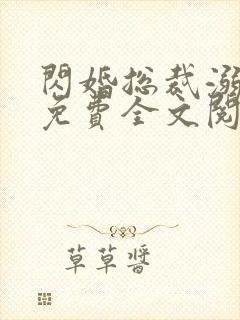 閃婚總裁溺
免費全文閱
草草醬